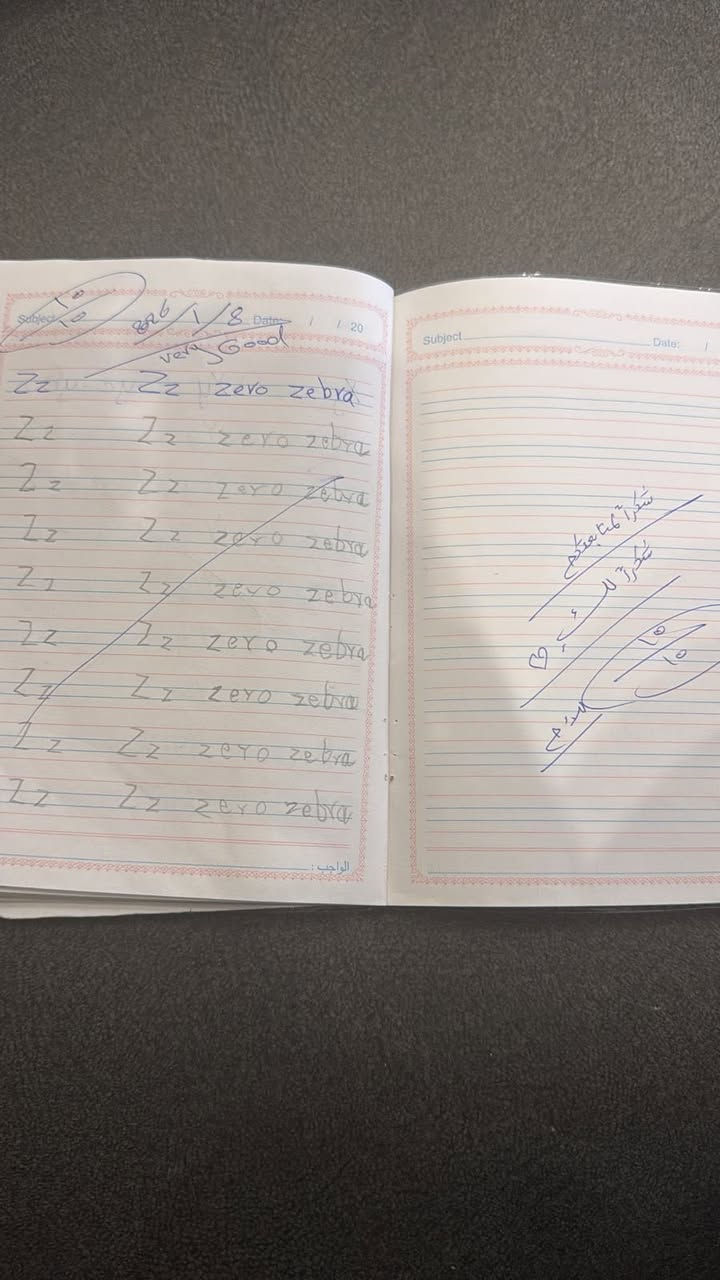 Subject
10
10
2026/1/8
Date: / / 20
very Good
Zz Zz zero zebra
Zz Zz zero zebra
Zz Zz zero zebra
Zz Zz zero zebra
Zz Zz zero zebra
Zz Zz zero zebra
Zz Zz zero zebra
Zz Zz zero zebra
Zz Zz zero zebra
الواجب :
Subject Date: /
شكراً لمتابعتكم
شكراً
١٥
١٥